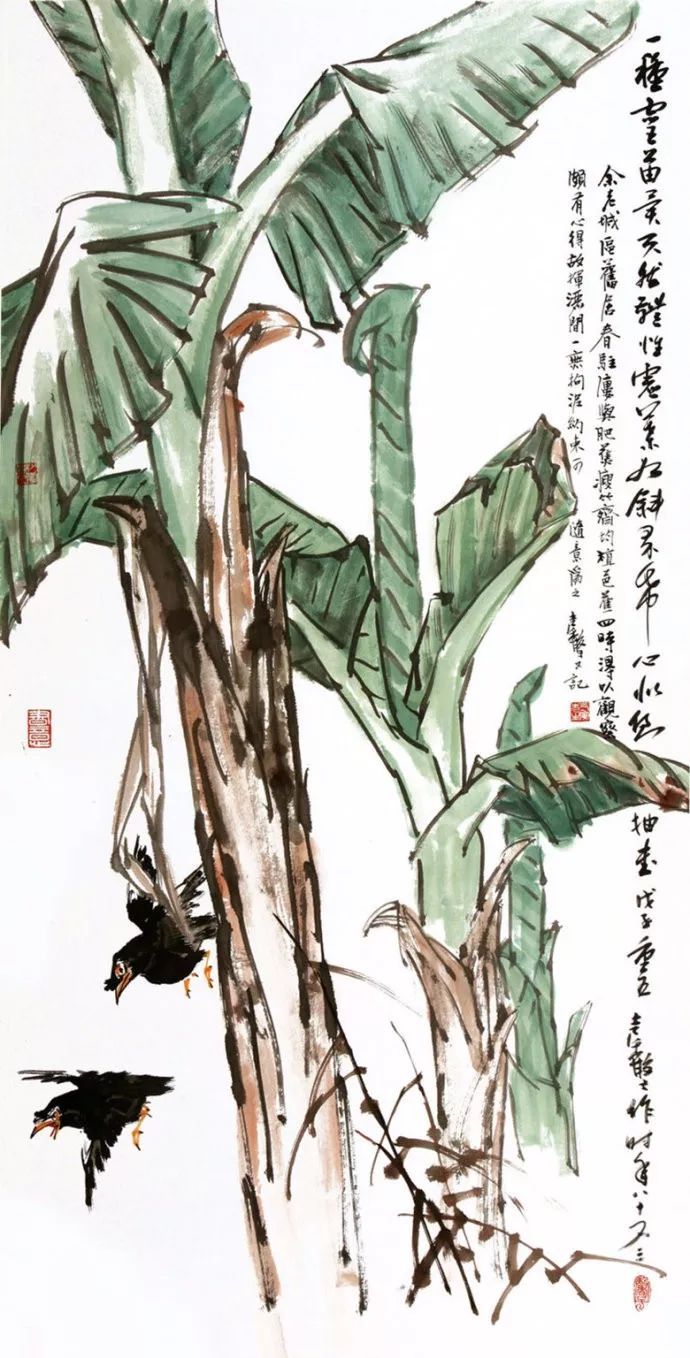 一種靈苗異天然體性虛葉如斜界帋心似倒抽書 戊子重五 作时年八十又三
余老城區舊居春駐廔與肥蕉瘦竹齋均植芭蕉四時得以觀察
頗有心得故揮灑間一無拘泥約束可隨意為之 又記